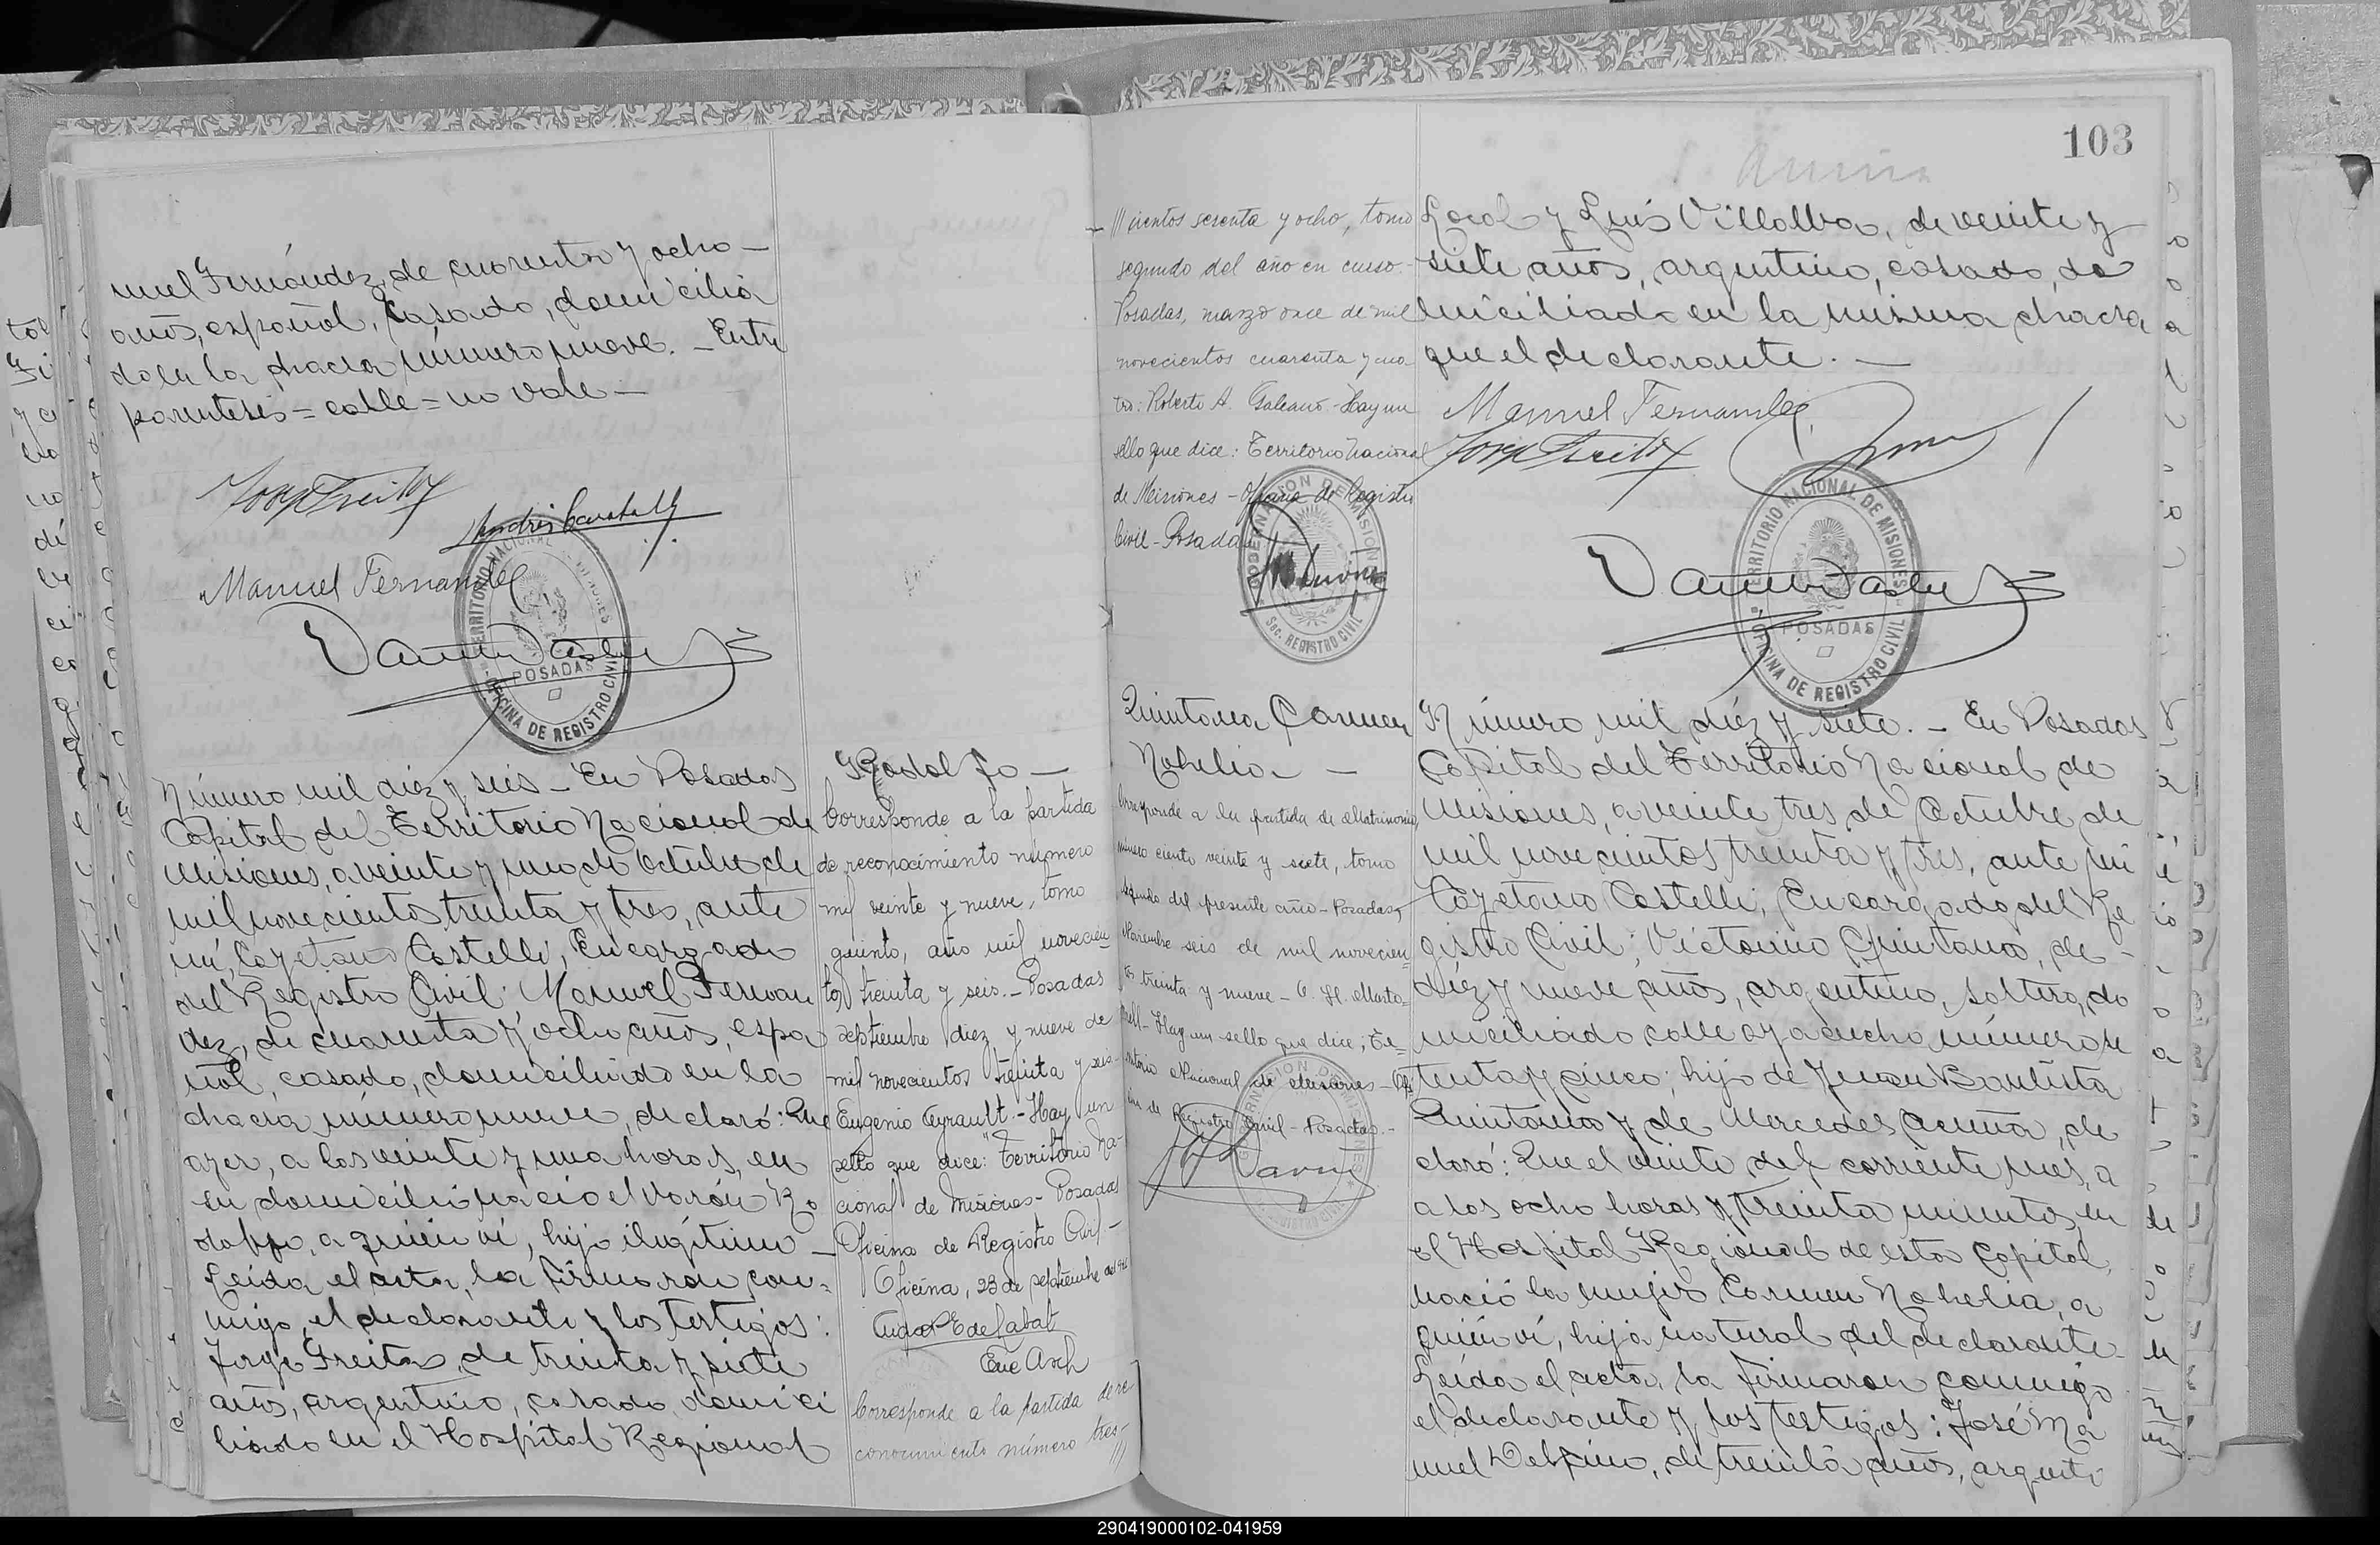 nuel Fernández, de cuarenta y ocho —
años, español, casado, domicilia
do en la chacra número nueve. — Entre
paréntesis = calle = no vale —
Manuel Fernandez
TERRITORIO NACIONAL DE MISIONES
POSADAS
OFICINA DE REGISTRO CIVIL
Número mil diez y seis — En Posadas
Capital del Territorio Nacional de
Misiones, a veinte y uno de Octubre de
mil novecientos treinta y tres, ante
mí, Cayetano Castelli, Encargado
del Registro Civil: Manuel Fernan
dez, de cuarenta y ocho años, espa
ñol, casado, domiciliado en la
chacra número nueve, declaró: Que
ayer, a las veinte y una horas, en
su domicilio nació el varón Ro
dolfo, a quién ví, hijo ilegítimo —
Leída el acta, la firmaron con-
migo, el declarante y los testigos:
Jorge Freitas, de treinta y siete
años, argentino, casado, domici
liado en el Hospital Regional
Rodolfo —
Corresponde a la partida
de reconocimiento número
mil veinte y nueve, tomo
quinto, año mil novecien
tos treinta y seis. — Posadas
septiembre diez y nueve de
mil novecientos treinta y seis-
Eugenio Ayrault. - Hay un
sello que dice: "Territorio Na-
cional de Misiones - Posadas
Oficina de Registro Civil —
Oficina, 23 de septiembre de 1936
Enc Arch
Corresponde a la partida de re
conocimiento número tres-
///
103
/// cientos sesenta y ocho, tomo
segundo del año en curso. -
Posadas, marzo once de mil
novecientos cuarenta y cua
tro: Roberto A. Galeano - Hay un
sello que dice: Territorio Nacional
de Misiones - Oficina de Registro
Civil - Posadas
GOBERNACION DE MISIONES
Sec. REGISTRO CIVIL
Quintana Carmen
Nohelia — —
Corresponde a la partida de Matrimonio,
número ciento veinte y siete, tomo
segundo del presente año - Posadas,
Noviembre seis de mil novecien-
tos treinta y nueve - C. H. Marto-
rell - Hay un sello que dice; Te-
rritorio Nacional de Misiones - Ofi-
cina de Registro Civil - Posadas. -
Local y Luis Villalba, de veinte y
siete años, argentino, casado, do
miciliado en la misma chacra
que el declarante. —
Manuel Fernandez
TERRITORIO NACIONAL DE MISIONES
POSADAS
OFICINA DE REGISTRO CIVIL
Número mil diéz y siete. — En Posadas
Capital del Territorio Nacional de
Misiones, a veinte tres de Octubre de
mil novecientos treinta y tres, ante mí
Cayetano Castelli, Encargado del Re
gistro Civil; Victorino Quintana, de -
diéz y nueve años, argentino, soltero, do
miciliado calle ayacucho número se
tenta y cinco; hijo de Juan Bautista
Quintana y de Mercedes Acuña, de
claró: Que el veinte del corriente mes, a
a las ocho horas y treinta minutos, en
el Hospital Regional de esta Capital,
nació la mujer Carmen Nohelia, a
quién ví, hija natural del declarante -
Leída el acta, la firmaron conmigo
el declarante y los testigos: José Ma
nuel Delfino, de treinta años, argenti
290419000102-041959